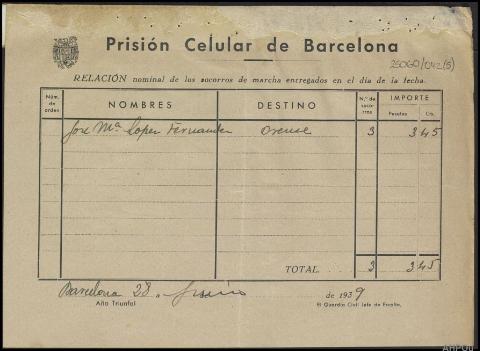 Prisión Celular de Barcelona
25060/042(5)
RELACIÓN nominal de los socorros de marcha entregados en el día de la fecha.
Núm. de orden NOMBRES DESTINO N.º de socorros IMPORTE
Pesetas Cts.
José Mª López Fernandez Orense 3 3 45
TOTAL. 3 3 45
Barcelona 28 de 1939
Año Triunfal
El Guardia Civil Jefe de Escolta,